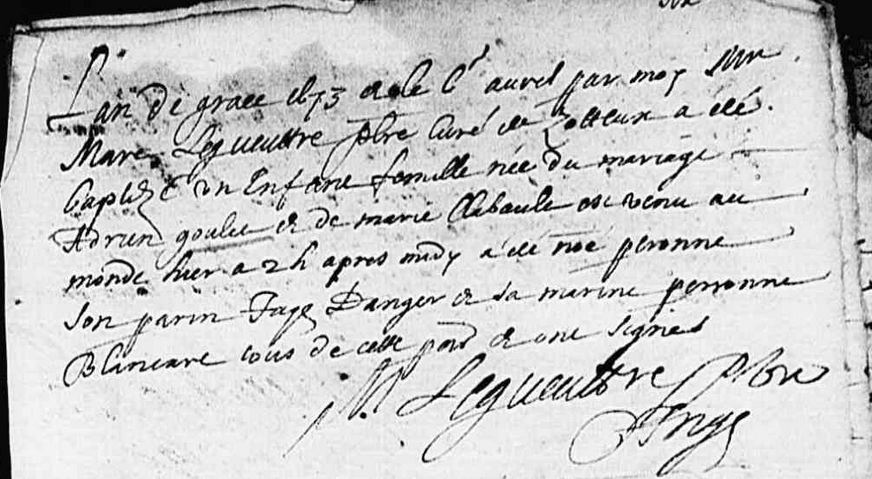 L'an de grace 1673 et le 6e avvril par moy sire
Marc Legueuttre pbre Curé de Zotteux a été
baptizé un Enfant femelle née du mariage
Adrien goulet et de marie Clabault est venu au
monde hier a 2h apres midy a été nōé peronne
son parin Jaqs Danger et sa marine peronne
Blancart tous de cette pars et ont signés
M Legueuttre pbre